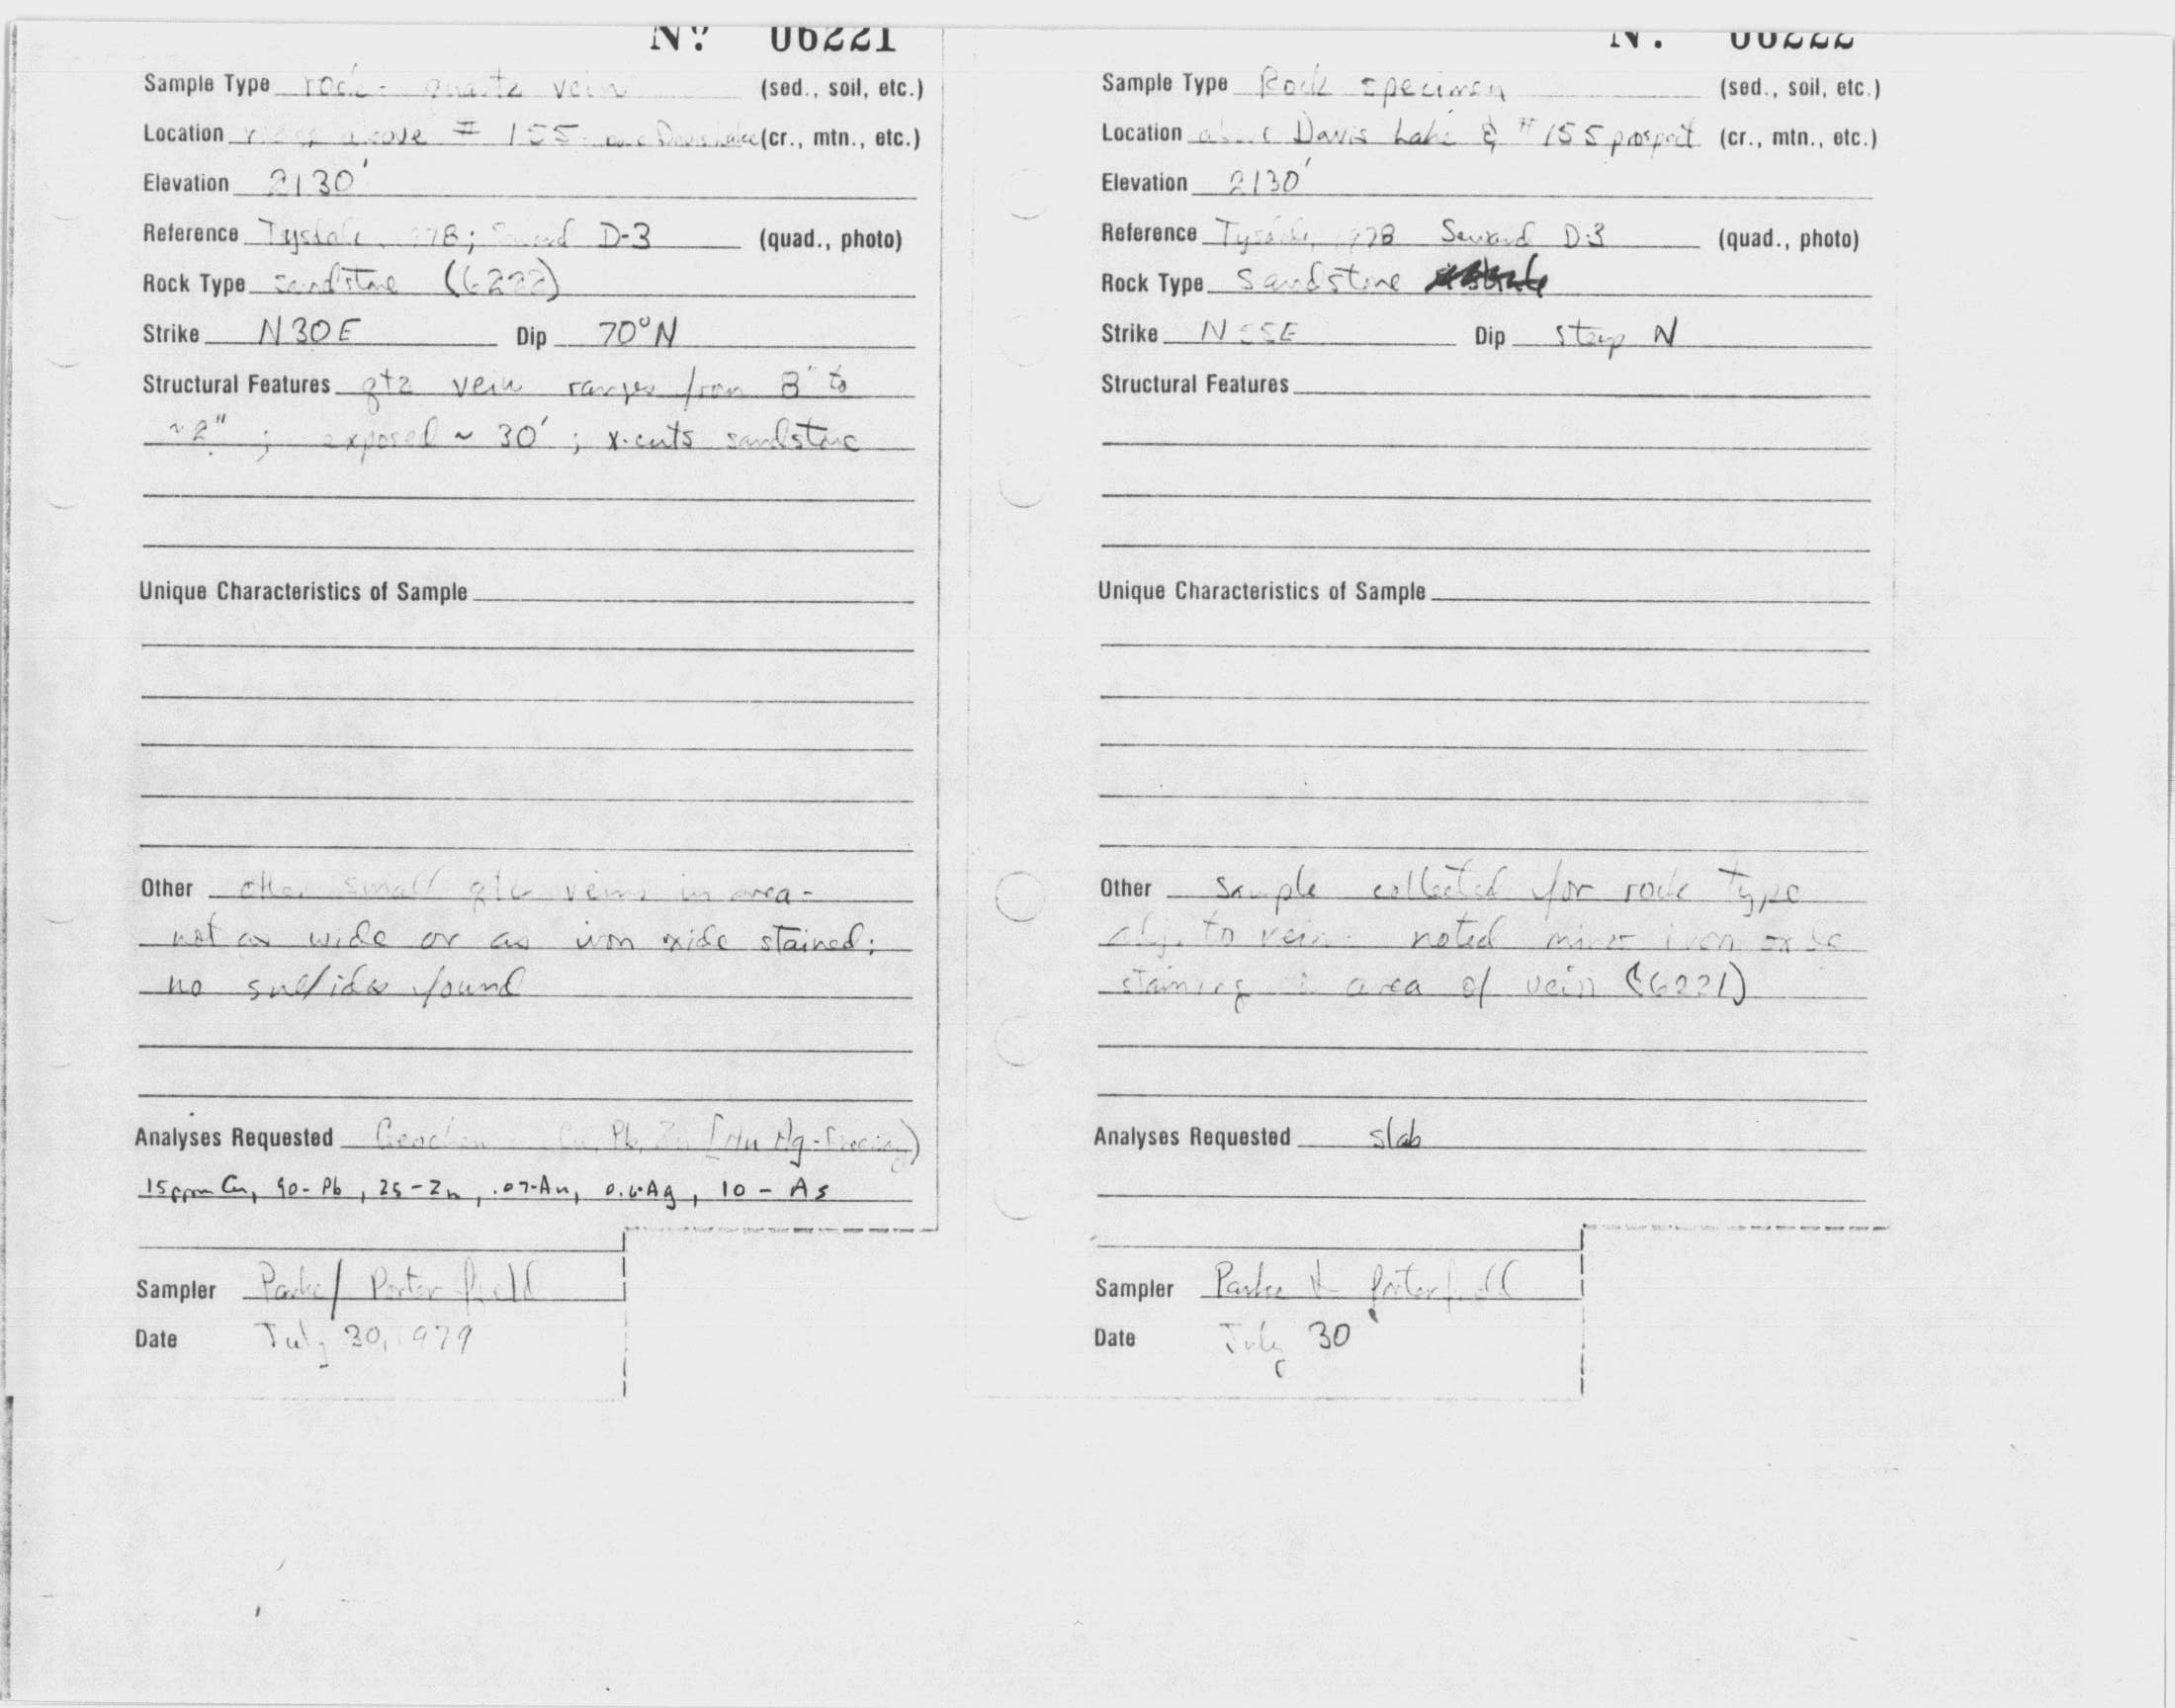 Nº 06221
Sample Type rock - quartz vein (sed., soil, etc.)
Location above # 155 Davis Lake (cr., mtn., etc.)
Elevation 2130'
Reference D-3 (quad., photo)
Rock Type sandstone (6222)
Strike N30E Dip 70°N
Structural Features qtz vein ranges from 8" to
~2" ; exposed ~ 30' ; x-cuts sandstone
Unique Characteristics of Sample
Other other small qtz veins in area -
not as wide or as iron oxide stained;
no sulfides found
Analyses Requested Geochem Cu, Pb, Zn
15ppm Cu, 90-Pb, 25-Zn, .07-Au, 0.6-Ag, 10-As
Sampler Parke/ Porterfield
Date July 30, 1979
Nº 06222
Sample Type Rock specimen (sed., soil, etc.)
Location above Davis Lake & #155 prospect (cr., mtn., etc.)
Elevation 2130'
Reference 1978 Seward D-3 (quad., photo)
Rock Type Sandstone
Strike Dip steep N
Structural Features
Unique Characteristics of Sample
Other Sample collected for rock type
adj. to vein. noted minor iron oxide
staining in area of vein (6221)
Analyses Requested slab
Sampler Parke & Porterfield
Date July 30